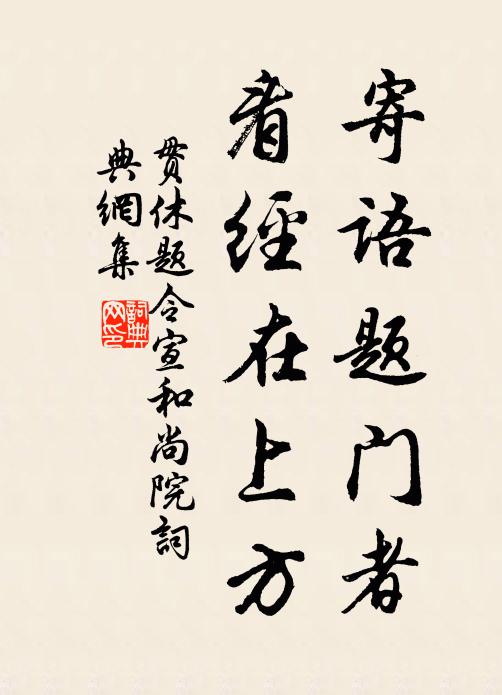 寄语题门者
看经在上方
贯休题令宣和尚院詞
典網集
詞典网印